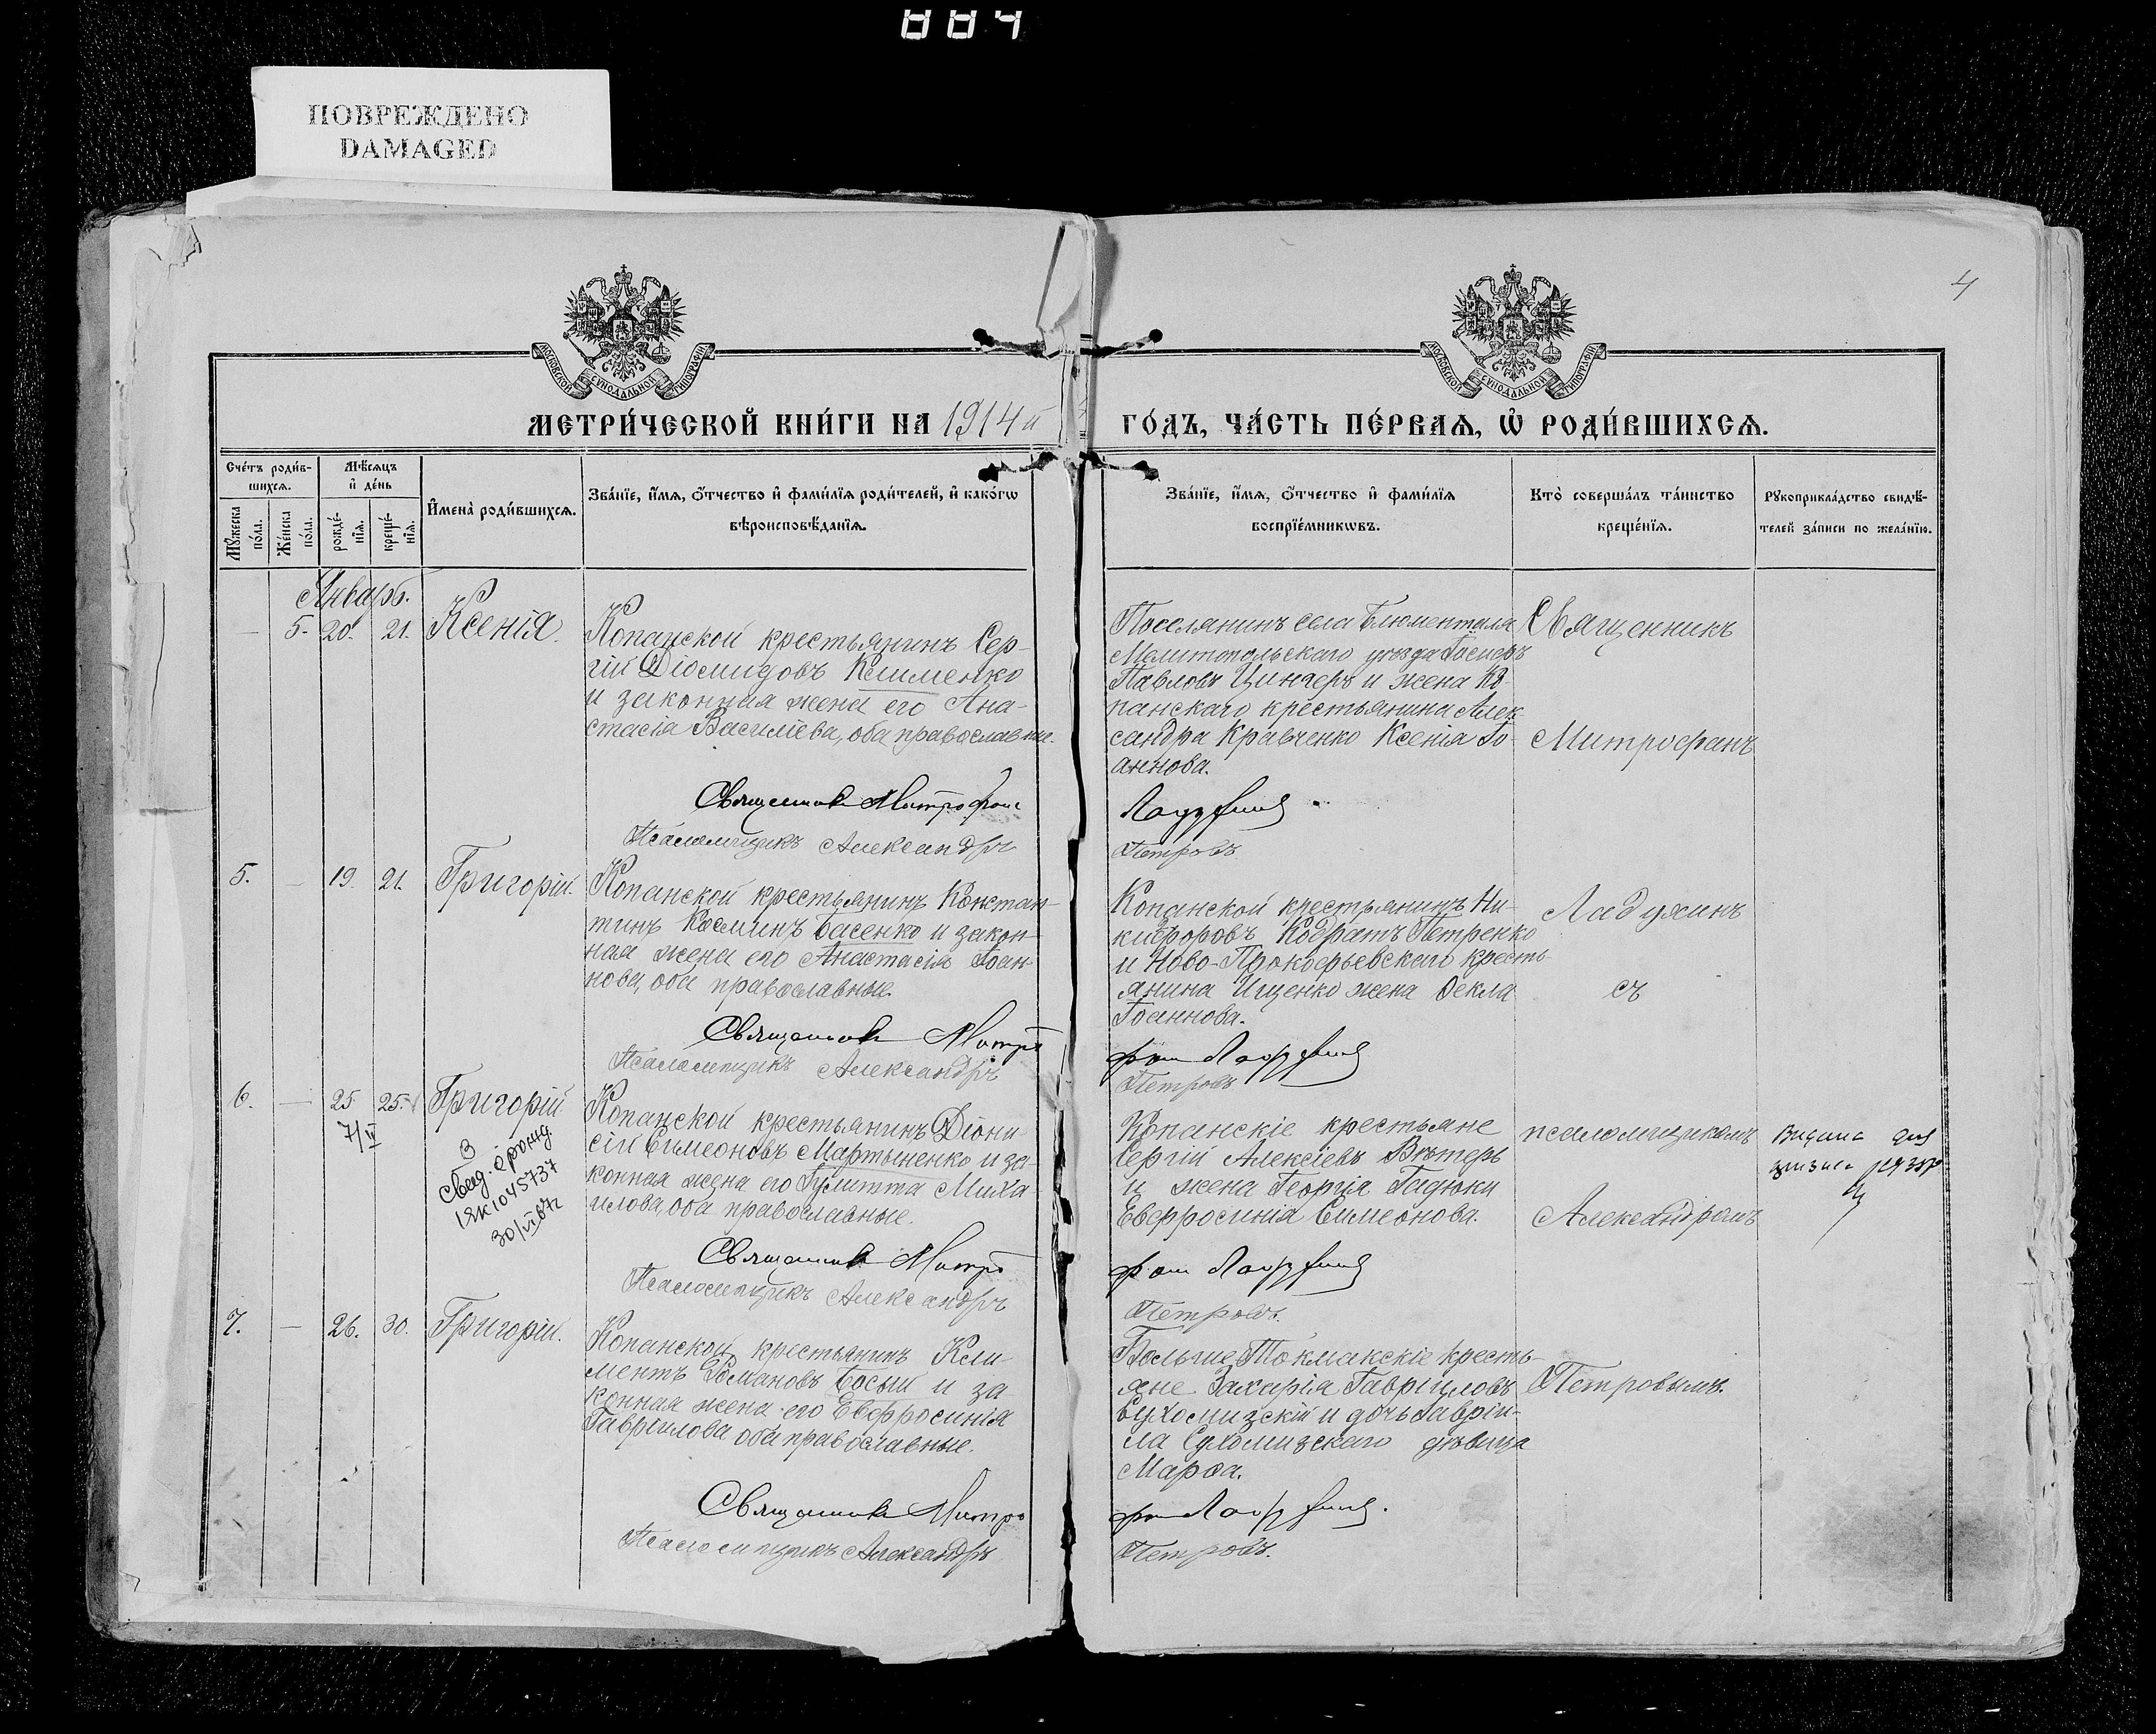 884
ПОВРЕЖДЕНО
DAMAGED
4
МОСКОВСКОЙ СѴНОДАЛЬНОЙ ТИПОГРАФІИ
МОСКОВСКОЙ СѴНОДАЛЬНОЙ ТИПОГРАФІИ
МЕТРИ́ЧЕСКОЙ КНИ́ГИ НА 1914й
ГО́ДЪ, ЧА́СТЬ ПЕ́РВАѦ, Ѡ҆ РОДИ́ВШИХСѦ.
Сче́тъ роди́в-
шихсѧ.
Мѣ́сѧцъ
и҆ де́нь
Мꙋ́жеска
по́ла.
Же́нска
по́ла.
рожде́-
нїѧ.
креще́-
нїѧ.
И҆мена̀ роди́вшихсѧ.
Зва́нїе, и҆́мѧ, ѻ҆́тчество и҆ фами́лїѧ роди́телей, и҆ како́гѡ
вѣроисповѣ́данїѧ.
Зва́нїе, и҆́мѧ, ѻ҆́тчество и҆ фами́лїѧ
воспрїе́мникѡвъ.
Кто̀ соверша́лъ та́инство
креще́нїѧ.
Рꙋкоприкла́дство свидѣ́-
телей за́писи по жела́нїю.
Январь.
— 5. 20. 21. Ксенія.
Копанской крестьянинъ Сер-
гій Діомидовъ Клименко
и законная жена его Ана-
стасія Василіева, оба православные.
Священникъ Митрофанъ
Псаломщикъ Александръ
Поселянинъ села Блюменталя
Мелитопольскаго уѣзда
Павловъ и жена Ко-
панскаго крестьянина Алек
сандра Кравченко Ксенія Іо-
аннова.
Ладухинъ
Петровъ
Священникъ
Митрофанъ
5. — 19. 21. Григорій.
Копанской крестьянинъ Констан-
тинъ Косминъ Басенко и закон-
ная жена его Анастасія Іоан-
нова, оба православные.
Священникъ Митро
Псаломщикъ Александръ
Копанской крестьянинъ Ни-
кифоровъ Кодратъ Петренко
и Ново-Прокофьевскаго кресть-
янина Ищенко жена Ѳекла
Іоаннова.
фанъ Ладухинъ
Петровъ
Ладухинъ
съ
6. — 25 25. Григорій
7/VI
З
свид. о рожд
IЯК 1045737
30/VI 67г
Копанской крестьянинъ Діони-
сій Симеоновъ Мартыненко и за-
конная жена его Іулитта Миха
илова, оба православные.
Священникъ Митро
Псаломщикъ Александръ
Копанскіе крестьяне
Сергій Алексіевъ Вѣтеръ
и жена Георгія Гадюки
Евфросинія Симеонова.
фанъ Ладухинъ
Петровъ.
псаломщикомъ
Александромъ
7. — 26. 30. Григорій.
Копанской крестьянинъ Кли-
ментъ Романовъ Босый и за
конная жена его Евфросинія
Гавріилова оба православные.
Священникъ Митро
Псаломщикъ Александръ
Больше-Токмакскіе кресть-
яне Захарія Гавріиловъ
Сухомизскій и дочь Гавріи-
ла Сухомизскаго дѣвица
Марѳа.
фанъ Ладухинъ.
Петровъ.
Петровымъ.